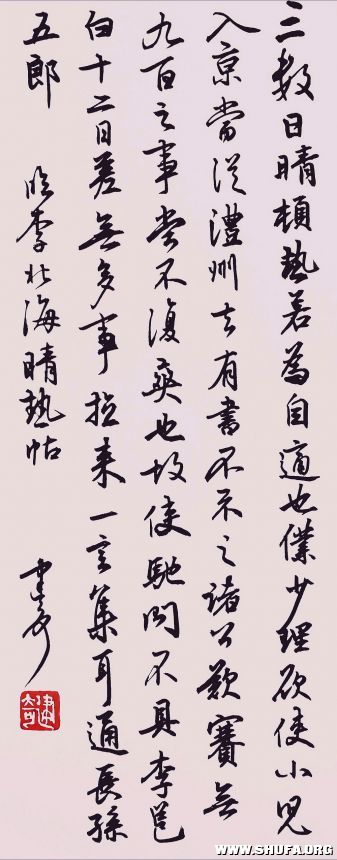 三數日晴頓熱若為自適也僕少理欲使小兒
入京當從澧州去有書不示之諸公歡賽無
九百之事當不復爽也故使馳問不具李邕
白十二日差無多事拉來一言集耳通長孫
五郎 臨李北海晴熱帖
WWW.SHUFA.ORG